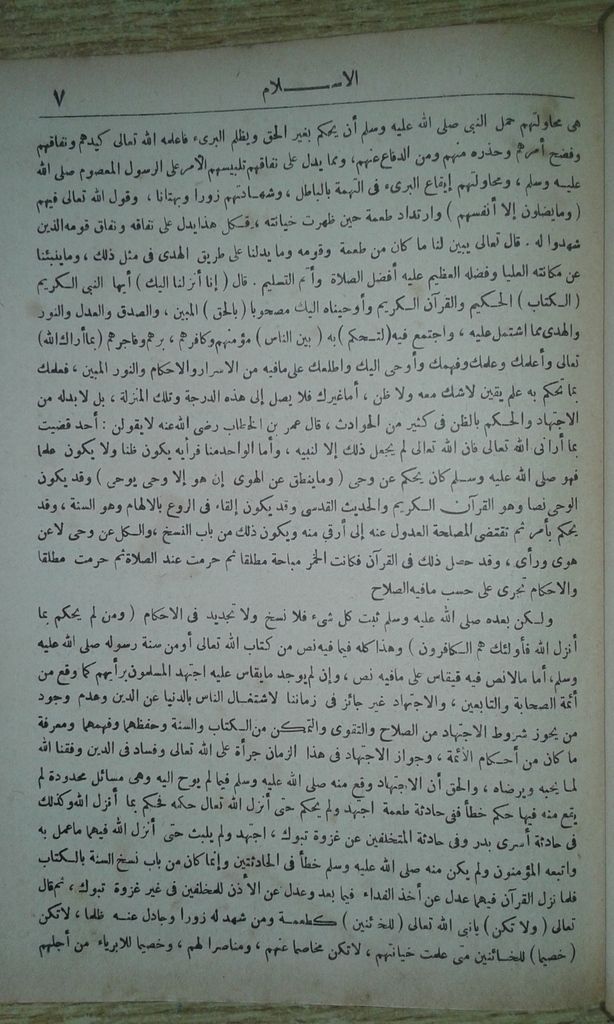 الاســـلام
٧
هى محاولتهم حمل النبى صلى الله عليه وسلم أن يحكم بغير الحق ويظلم البرىء فاعلمه الله تعالى كيدهم ونفاقهم
وفضح أمرهم وحذره منهم ومن الدفاع عنهم، ومما يدل على نفاقهم تلبيسهم الأمر على الرسول المعصوم صلى الله
عليه وسلم ، ومحاولتهم إيقاع البرىء فى التهمة بالباطل ، وشهادتهم زورا وبهتانا ، وقول الله تعالى فيهم
( وما يضلون إلا أنفسهم ) وارتداد طعمة حين ظهرت خيانته ، فكل هذا يدل على نفاقه ونفاق قومه الذين
شهدوا له . قال تعالى يبين لنا ما كان من طعمة وقومه وما يدلنا على طريق الهدى فى مثل ذلك ، وما ينبئنا
عن مكانته العليا وفضله العظيم عليه أفضل الصلاة وأتم التسليم . قال ( إنا أنزلنا اليك ) أيها النبى الكريم
( الكتاب ) الحكيم والقرآن الكريم وأوحيناه اليك مصحوبا ( بالحق ) المبين ، والصدق والعدل والنور
والهدى مما اشتمل عليه ، واجتمع فيه (لتحكم) به ( بين الناس ) مؤمنهم وكافرهم ، برهم وفاجرهم (بما أراك الله)
تعالى وأعلمك وعلمك وفهمك وأوحى اليك واطلعك على مافيه من الاسرار والاحكام والنور المبين ، فعلمك
بما تحكم به علم يقين لاشك معه ولا ظن ، أما غيرك فلا يصل إلى هذه الدرجة وتلك المنزلة ، بل لابد له من
الاجتهاد والحكم بالظن فى كثير من الحوادث ، قال عمر بن الخطاب رضى الله عنه لايقولن : أحد قضيت
بما أرانى الله تعالى فان الله تعالى لم يجعل ذلك إلا لنبيه ، وأما الواحد منا فرأيه يكون ظنا ولا يكون علما
فهو صلى الله عليه وسلم كان يحكم عن وحى ( وما ينطق عن الهوى إن هو إلا وحى يوحى ) وقد يكون
الوحى نصا وهو القرآن الكريم والحديث القدسى وقد يكون إلقاء فى الروع بالالهام وهو السنة ، وقد
يحكم بأمر ثم تقتضى المصلحة العدول عنه إلى أرقى منه ويكون ذلك من باب النسخ ، والكل عن وحى لا عن
هوى ورأى ، وقد حصل ذلك فى القرآن فكانت الخمر مباحة مطلقا ثم حرمت عند الصلاة ثم حرمت مطلقا
والاحكام تجرى على حسب مافيه الصلاح
ولكن بعده صلى الله عليه وسلم ثبت كل شىء فلا نسخ ولا تجديد فى الاحكام ( ومن لم يحكم بما
أنزل الله فأولئك هم الكافرون ) وهذا كله فيما فيه نص من كتاب الله تعالى أو من سنة رسوله صلى الله عليه
وسلم، أما مالا نص فيه فيقاس على مافيه نص ، وإن لم يوجد مايقاس عليه اجتهد المسلمون برأيهم كما وقع من
أئمة الصحابة والتابعين ، والاجتهاد غير جائز فى زماننا لاشتغال الناس بالدنيا عن الدين وعدم وجود
من يحوز شروط الاجتهاد من الصلاح والتقوى والتمكن من الكتاب والسنة وحفظهما وفهمهما ومعرفة
ما كان من أحكام الأئمة ، وجواز الاجتهاد فى هذا الزمان جرأة على الله تعالى وفساد فى الدين وفقنا الله
لما يحبه ويرضاه ، والحق أن الاجتهاد وقع منه صلى الله عليه وسلم فيما لم يوح اليه وهى مسائل محدودة لم
يقع منه فيها حكم خطأ ففى حادثة طعمة اجتهد ولم يحكم حتى أنزل الله تعالى حكمه فحكم بما أنزل الله وكذلك
فى حادثة أسرى بدر وفى حادثة المتخلفين عن غزوة تبوك ، اجتهد ولم يلبث حتى أنزل الله فيهما ماعمل به
واتبعه المؤمنون ولم يكن منه صلى الله عليه وسلم خطأ فى الحادثتين وإنما كان من باب نسخ السنة بالكتاب
فلما نزل القرآن فيهما عدل عن أخذ الفداء فيما بعد وعدل عن الأذن للمخلفين فى غير غزوة تبوك ، ثم قال
تعالى ( ولا تكن ) يانبى الله تعالى ( للخائنين ) كطعمة ومن شهد له زورا وجادل عنه ظلما ، لاتكن
( خصيما ) للخائنين متى علمت خيانتهم ، لاتكن مخاصما عنهم ، ومناصرا لهم ، وخصيما للابرياء من أجلهم